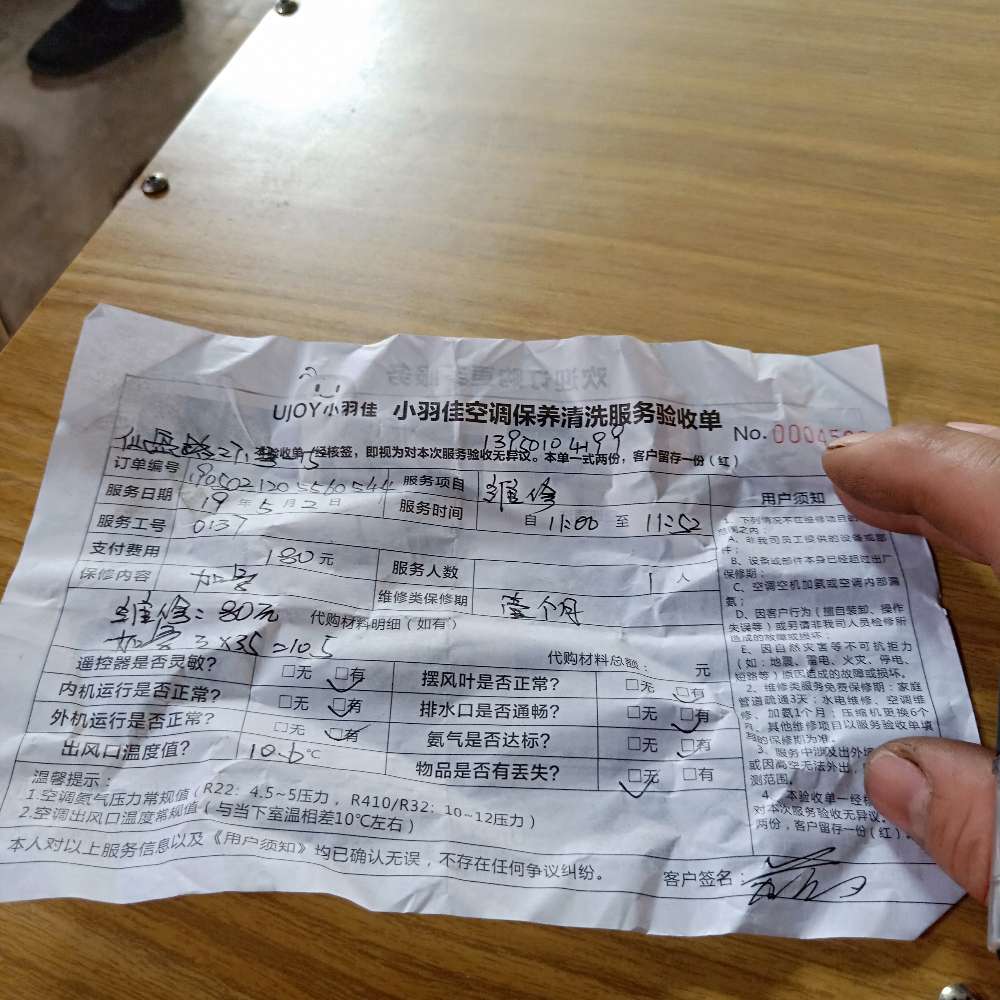 UJOY小羽佳 小羽佳空调保养清洗服务验收单 No.
本验收单一经核签，即视为对本次服务验收无异议。本单一式两份，客户留存一份（红）
订单编号 服务项目 维修
服务日期 19年5月2日 服务时间 自 11:00 至 11:52
服务工号 0137
支付费用 180元 服务人数 1人
保修内容 加氨 维修类保修期 壹个月
维修：80元 代购材料明细（如有）
3×35=10.5
代购材料总额： 元
遥控器是否灵敏？ □无 □有 摆风叶是否正常？ □无 □有
内机运行是否正常？ □无 □有 排水口是否通畅？ □无 □有
外机运行是否正常？ □无 □有 氨气是否达标？ □无 □有
出风口温度值？ 10.6℃ 物品是否有丢失？ □无 □有
温馨提示：
1.空调氨气压力常规值（R22：4.5~5压力，R410/R32：10~12压力）
2.空调出风口温度常规值（与当下室温相差10℃左右）
本人对以上服务信息以及《用户须知》均已确认无误，不存在任何争议纠纷。
客户签名：
用户须知
1、下列情况不在维修项目
A、非我司员工提供的设备或部
件；
B、设备或部件本身已经超过出厂
保修期；
C、空调空机加氨或空调内部漏
氨；
D、因客户行为（擅自装卸、操作
失误等）或另请非我司人员检修所
造成的故障或损坏；
E、因自然灾害等不可抗拒力
（如：地震、雷电、火灾、停电、
短路等）原因造成的故障或损坏。
2、维修类服务免费保修期：家庭
管道疏通3天；水电维修、空调维
修、加氨1个月；压缩机更换6个
月、其他维修项目以服务验收单填
写的保修期为准。
3、服务中涉及出外
或因高空无法外出，
测范围。
4、本验收单一经
对本次服务验收无异议。
两份，客户留存一份（红）。